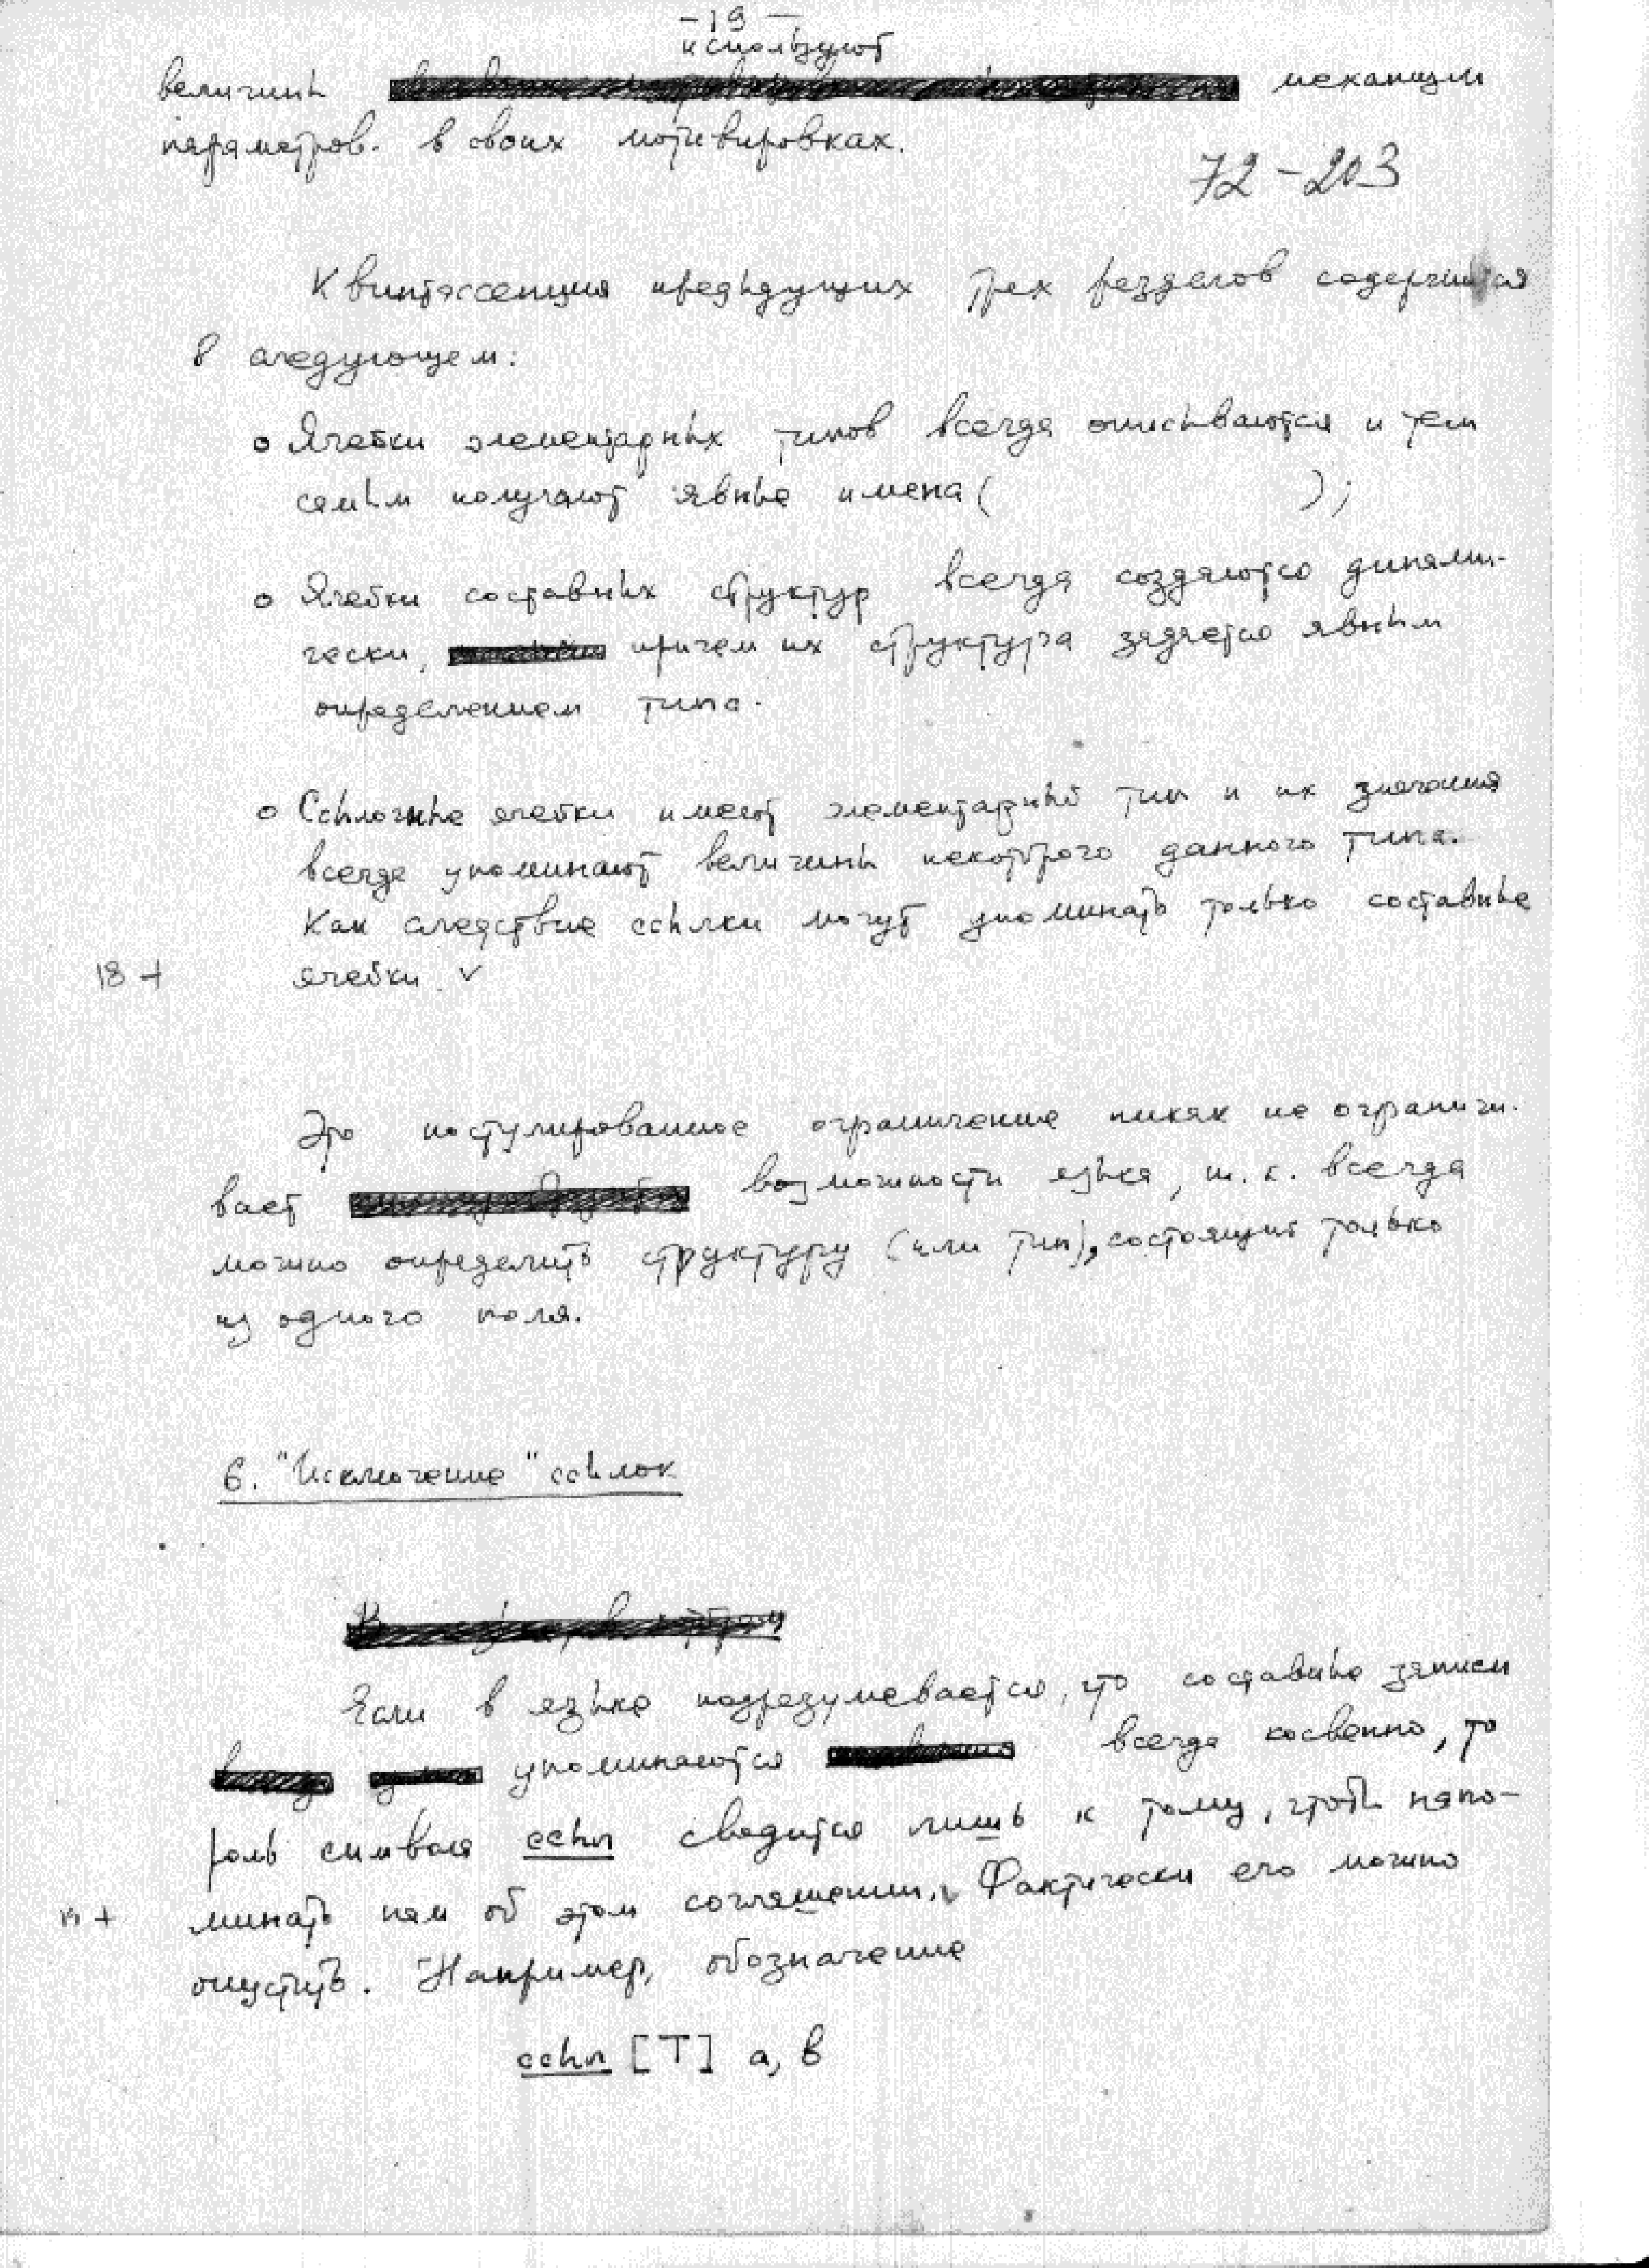 -19-
используют
величины механизм
параметров. в своих мотивировках.
72-203
Квинтэссенция предыдущих трех разделов содержится
в следующем:
о Ячейки элементарных типов всегда описываются и тем
самым получают явные имена ( );
о Ячейки составных структур всегда создаются динами-
чески, причем их структура задается явным
определением типа.
о Ссылочные ячейки имеют элементарный тип и их значения
всегда упоминают величины некоторого данного типа.
Как следствие ссылки могут упоминать только составные
18 + ячейки. ✓
Это постулированное ограничение никак не ограничи-
вает возможности языка, т.к. всегда
можно определить структуру (или тип), состоящую только
из одного поля.
6. "Исключение" ссылок
Если в языке подразумевается, что составные записи
упоминаются всегда косвенно, то
роль символа ссыл сводится лишь к тому, чтобы напо-
минать нам об этом соглашении. Фактически его можно
опустить. Например, обозначение
ссыл [T] a, b